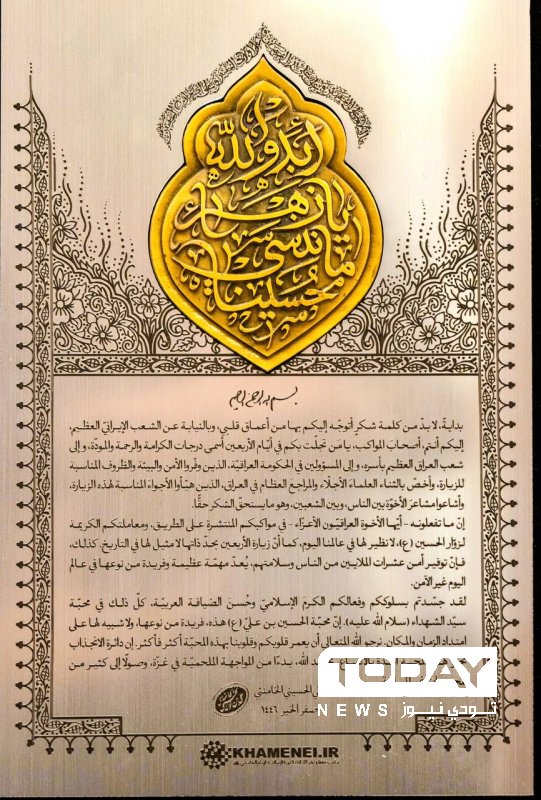 أبد والله
يا زهراء
ما ننسى
حسيناه
بدايةً، لا بدّ من كلمة شكرٍ أتوجّه إليكم بها من أعماق قلبي، وبالنيابة عن الشعب الإيرانيّ العظيم،
إليكم أنتم أصحاب المواكب، يا من تجلّت بكم في أيّام الأربعين أسمى درجات الكرامة والرحمة والمودّة، وإلى
شعب العراق العظيم بأسره، وإلى المسؤولين في الحكومة العراقيّة، الذين وفّروا الأمن والبيئة والظروف المناسبة
للزيارة، وأخصّ بالثناء العلماءَ الأجلّاء والمراجعَ العظام في العراق، الذين هيّأوا الأجواءَ المناسبة لهذه الزيارة،
وأشاعوا مشاعرَ الأخوّة بين الناس، وبين الشعبين، وهو ما يستحقّ الشكر حقًّا.
إنّ ما تفعلونه - أيّها الأخوة العراقيّون الأعزّاء - في مواكبكم المنتشرة على الطريق، ومعاملتكم الكريمة
لزوّار الحسين (ع)، لا نظير لها في عالمنا اليوم، كما أنّ زيارة الأربعين بحدّ ذاتها لا مثيل لها في التاريخ. كذلك،
فإنّ توفير أمن عشرات الملايين من الناس وسلامتهم، يُعدّ مهمّة عظيمة وفريدة من نوعها في عالم
اليوم غير الآمن.
لقد جسّدتم بسلوككم وفعالكم الكرمَ الإسلاميّ وحُسنَ الضيافة العربيّة، كلّ ذلك في محبّة
سيّد الشهداء (سلام الله عليه). إنّ محبّة الحسين بن عليّ (ع) هذه، فريدة من نوعها، ولا شبيه لها على
امتداد الزمان والمكان. نرجو الله المتعالي أن يعمر قلوبكم وقلوبنا بهذه المحبّة أكثر فأكثر. إن دائرة الانجذاب
الله، بدءًا من المواجهة الملحميّة في غزّة، وصولًا إلى كثير من
الحسيني الخامنئي
صفر الخير ١٤٤٦
TODAY
NEWS تودي نيوز
KHAMENEI.IR